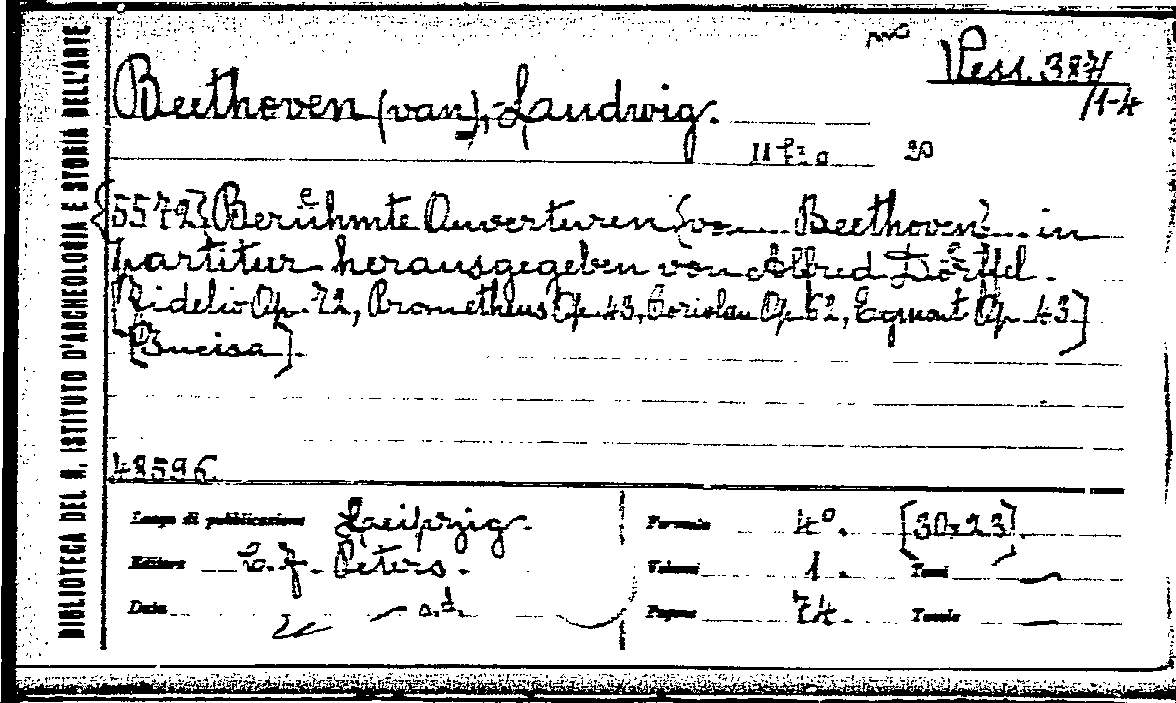 Vess. 387/
/1-4
Beethoven (van), Laudwig.
{5572} Berühmte Ouverturen {von Beethoven} in
partitur herausgegeben von Alfred Dörffel.
[Fidelio Op. 72, Prometheus Op. 43, Coriolan Op. 62, Egmont Op. 43]
[Incisa].
48596
Luogo di pubblicazione Laeipzig.
Editore C. F. Peters.
Data s.d.
Formato 4º. [30x23].
Volumi 1. Tomi —
Pagine 74. Tavole —
BIBLIOTECA DEL R. ISTITUTO D'ARCHEOLOGIA E STORIA DELL'ARTE